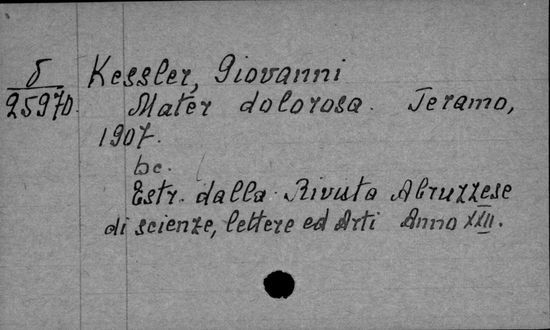 δ
25970.
Kessler, Giovanni
Mater dolorosa. Teramo,
1907.
bc.
Estr. dalla Rivista Abruzzese
di scienze, lettere ed Arti Anno XXII.